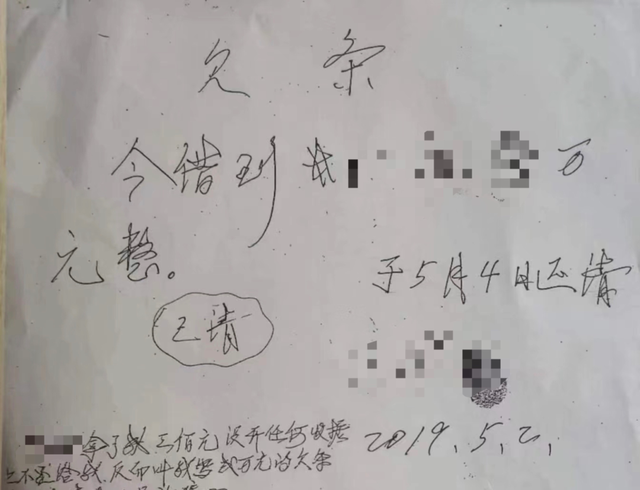 欠条
今错到 万
元整。
于5月4日还清
已清
拿了我三佰元没开任何收据
2019.5.2.
不还给我.反而叫我写 万元的欠条